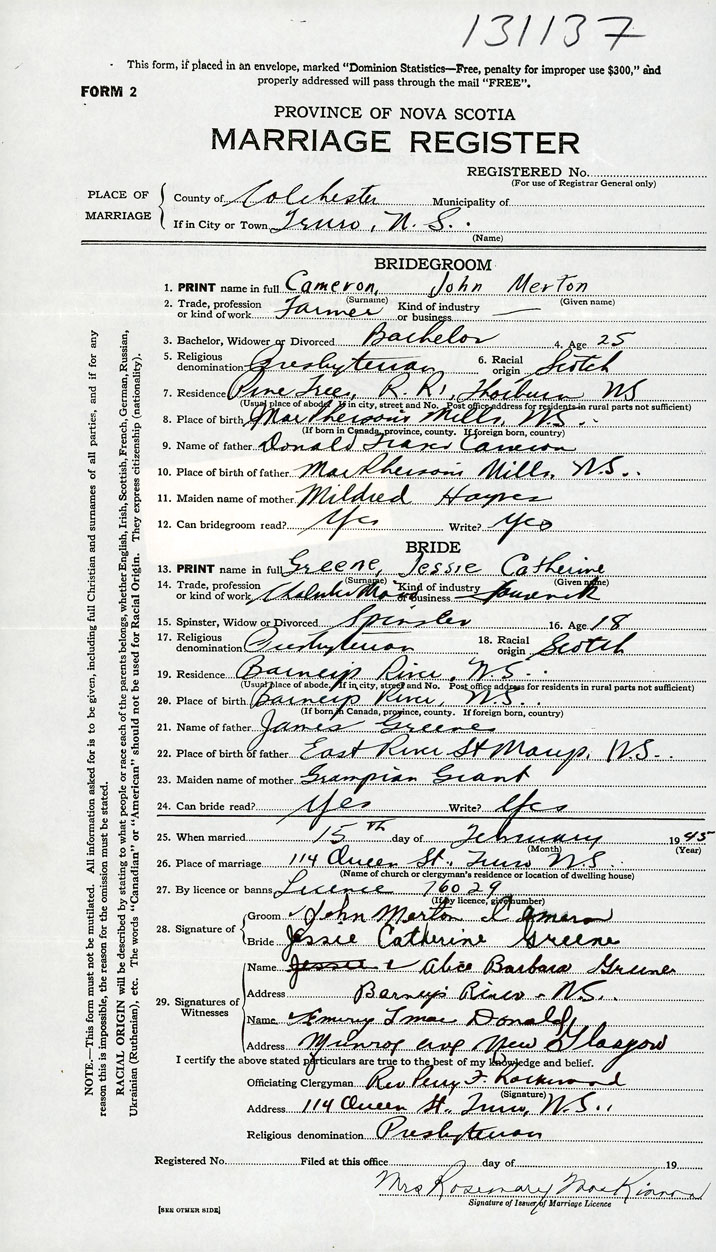 131137
This form, if placed in an envelope, marked "Dominion Statistics—Free, penalty for improper use $300," and
properly addressed will pass through the mail "FREE".
FORM 2
PROVINCE OF NOVA SCOTIA
MARRIAGE REGISTER
REGISTERED No.
(For use of Registrar General only)
PLACE OF MARRIAGE
County of Colchester Municipality of
If in City or Town Truro, N.S.
(Name)
BRIDEGROOM
1. PRINT name in full Cameron, John Merton
(Surname) (Given name)
2. Trade, profession or kind of work Farmer Kind of industry or business —
3. Bachelor, Widower or Divorced Bachelor 4. Age 25
5. Religious denomination Presbyterian 6. Racial origin Scotch
7. Residence Pine Tree, R.R.1, Thorburn NS
(Usual place of abode. If in city, street and No. Post office address for residents in rural parts not sufficient)
8. Place of birth MacPherson's Mills, NS.
(If born in Canada, province, county. If foreign born, country)
9. Name of father Donald Cameron
10. Place of birth of father MacPherson's Mills, N.S.
11. Maiden name of mother Mildred Haynes
12. Can bridegroom read? Yes Write? Yes
BRIDE
13. PRINT name in full Greene, Jessie Catherine
(Surname) (Given name)
14. Trade, profession or kind of work Kind of industry or business
15. Spinster, Widow or Divorced Spinster 16. Age 18
17. Religious denomination Presbyterian 18. Racial origin Scotch
19. Residence Barneys River, NS.
(Usual place of abode. If in city, street and No. Post office address for residents in rural parts not sufficient)
20. Place of birth Barneys River, NS.
(If born in Canada, province, county. If foreign born, country)
21. Name of father James Greene
22. Place of birth of father East River St Marys, N.S.
23. Maiden name of mother Grampian Grant
24. Can bride read? Yes Write? Yes
25. When married 15th day of February 1945
(Month) (Year)
26. Place of marriage 114 Queen St., Truro NS.
(Name of church or clergyman's residence or location of dwelling house)
27. By licence or banns Licence 76029
(If by licence, give number)
28. Signature of
Groom John Merton Cameron
Bride Jessie Catherine Greene
29. Signatures of Witnesses
Name Alice Barbara Greene
Address Barneys River - NS.
Name Emery MacDonald
Address Munroe ave New Glasgow
I certify the above stated particulars are true to the best of my knowledge and belief.
Officiating Clergyman Rev Perry F. Rockwood
(Signature)
Address 114 Queen St., Truro, N.S.
Religious denomination Presbyterian
Registered No. Filed at this office day of 19
Mrs Rosemary MacKinnon
Signature of Issuer of Marriage Licence
[SEE OTHER SIDE]
NOTE.—This form must not be mutilated. All information asked for is to be given, including full Christian and surnames of all parties, and if for any
reason this is impossible, the reason for the omission must be stated.
RACIAL ORIGIN will be described by stating to what people or race each of the parents belongs, whether English, Irish, Scottish, French, German, Russian,
Ukrainian (Ruthenian), etc. The words "Canadian" or "American" should not be used for Racial Origin. They express citizenship (nationality).